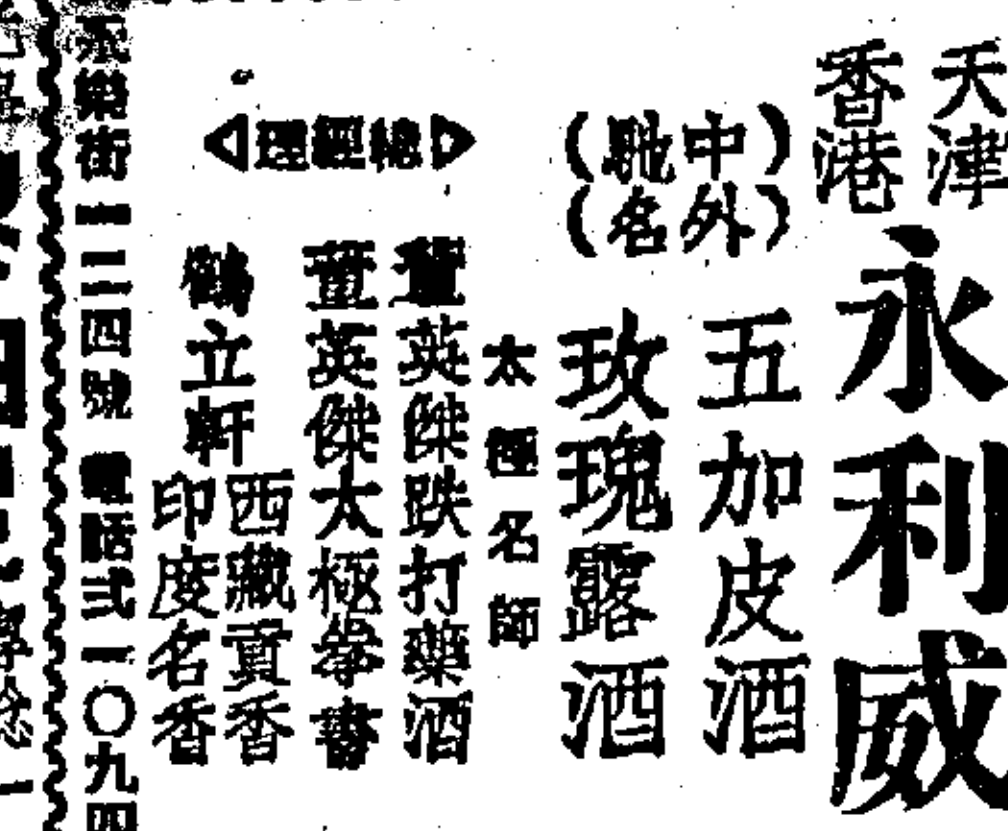 天津
香港
永利威
(中馳)
(外名)
五加皮酒
玫瑰露酒
總經理
太極名師
董英傑跌打藥酒
董英傑太極拳書
鶴立軒
西藏貢香
印度名香
永樂街一二四號 電話弍一〇九四